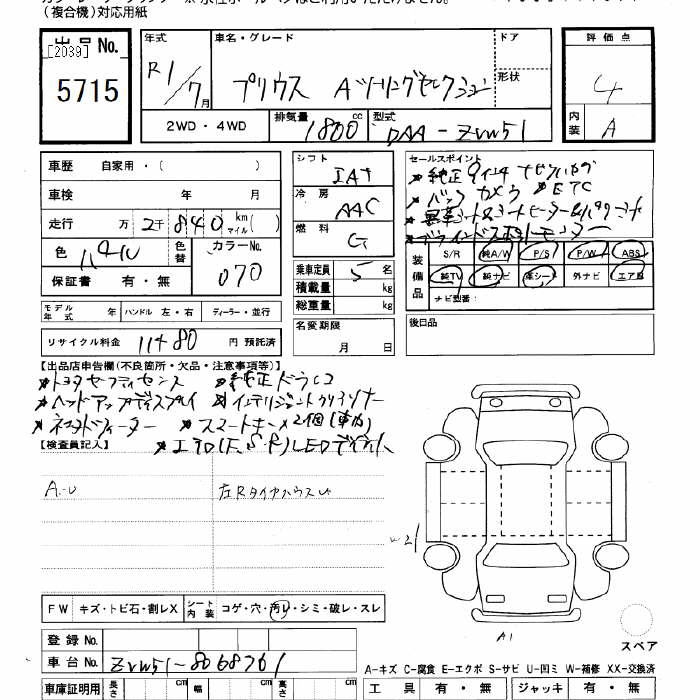 （複合機）対応用紙
出品 No.
[2039]
5715
年式
R1/7月
車名・グレード
プリウス Aツーリングセレクション
ドア
形状
評価点
4
内装
A
2WD・4WD
排気量
1800 cc
型式
DAA-ZVW51
車歴 自家用・( )
車検 年 月
走行 万 2千 840 km マイル ( )
色 パール
色替
カラーNo.
070
保証書 有・無
シフト
IAT
冷房
AAC
燃料
G
乗車定員 5 名
積載量 kg
総重量 kg
セールスポイント
バックカメラ ETC
ブラインドスポットモニター
装備品
S/R 純A/W P/S P/W ABS
純TV 純ナビ 革シート 外ナビ エアB
ナビ型番：
モデル年式 年 ハンドル 左・右 ディーラー・並行
リサイクル料金 円 預託済
名変期限
月 日
後日品
【出品店申告欄(不良箇所・欠品・注意事項等)】
トヨタセーフティセンス
ヘッドアップディスプレイ インテリジェントクリアランスソナー
スマートキー×2個(車内)
エアロ(F、S、R)
【検査員記入】
A.U
左Rタイヤハウス
FW キズ・トビ石・割レX シート内装 コゲ・穴・汚レ・シミ・破レ・スレ
A1
スペア
登録No.
車台No. ZVW51-8068761
A-キズ C-腐食 E-エクボ S-サビ U-凹ミ W-補修 XX-交換済
車庫証明用 長さ cm 幅 cm 高さ cm
工具 有・無 ジャッキ 有・無